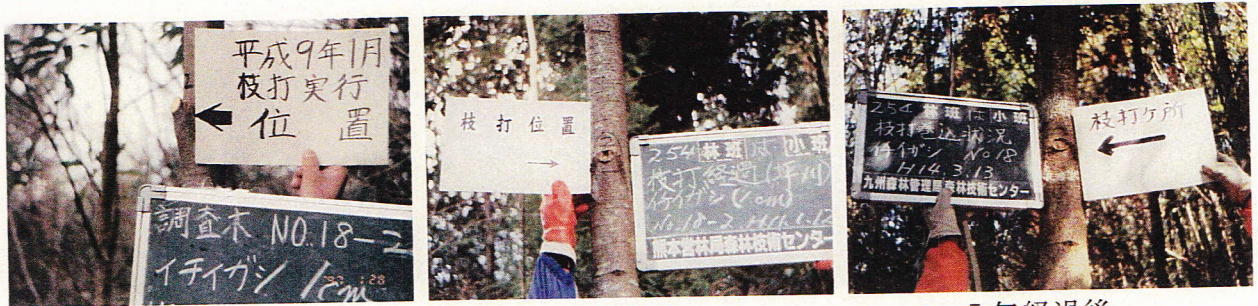 平成9年1月
枝打実行
位置
調査木 NO.18-2
イチイガシ 1cm
枝打位置
254 林班 は 小班
枝打経過(坪川)
イチイガシ (1cm)
No.18-2
熊本営林局森林技術センター
254 林班 は 小班
枝打巻込状況
イチイガシ No18
H14.3.13
九州森林管理局森林技術センター
枝打ケ所
5年経過後